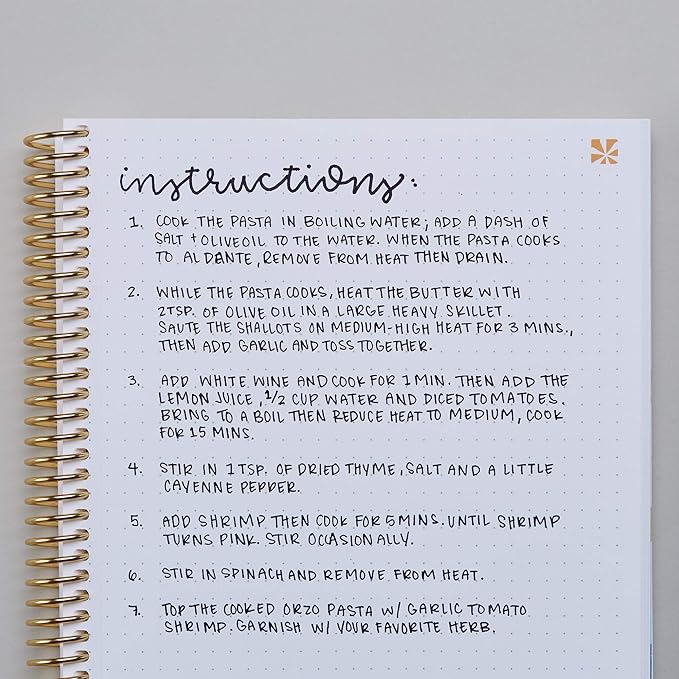 instructions:
1. COOK THE PASTA IN BOILING WATER; ADD A DASH OF
SALT + OLIVE OIL TO THE WATER. WHEN THE PASTA COOKS
TO AL DANTE, REMOVE FROM HEAT THEN DRAIN.
2. WHILE THE PASTA COOKS, HEAT THE BUTTER WITH
2TSP. OF OLIVE OIL IN A LARGE HEAVY SKILLET.
SAUTE THE SHALLOTS ON MEDIUM-HIGH HEAT FOR 3 MINS.,
THEN ADD GARLIC AND TOSS TOGETHER.
3. ADD WHITE WINE AND COOK FOR 1 MIN. THEN ADD THE
LEMON JUICE, 1/2 CUP WATER AND DICED TOMATOES.
BRING TO A BOIL THEN REDUCE HEAT TO MEDIUM, COOK
FOR 15 MINS.
4. STIR IN 1 TSP. OF DRIED THYME, SALT AND A LITTLE
CAYENNE PEPPER.
5. ADD SHRIMP THEN COOK FOR 5 MINS. UNTIL SHRIMP
TURNS PINK. STIR OCCASIONALLY.
6. STIR IN SPINACH AND REMOVE FROM HEAT.
7. TOP THE COOKED ORZO PASTA W/ GARLIC TOMATO
SHRIMP. GARNISH W/ YOUR FAVORITE HERB.